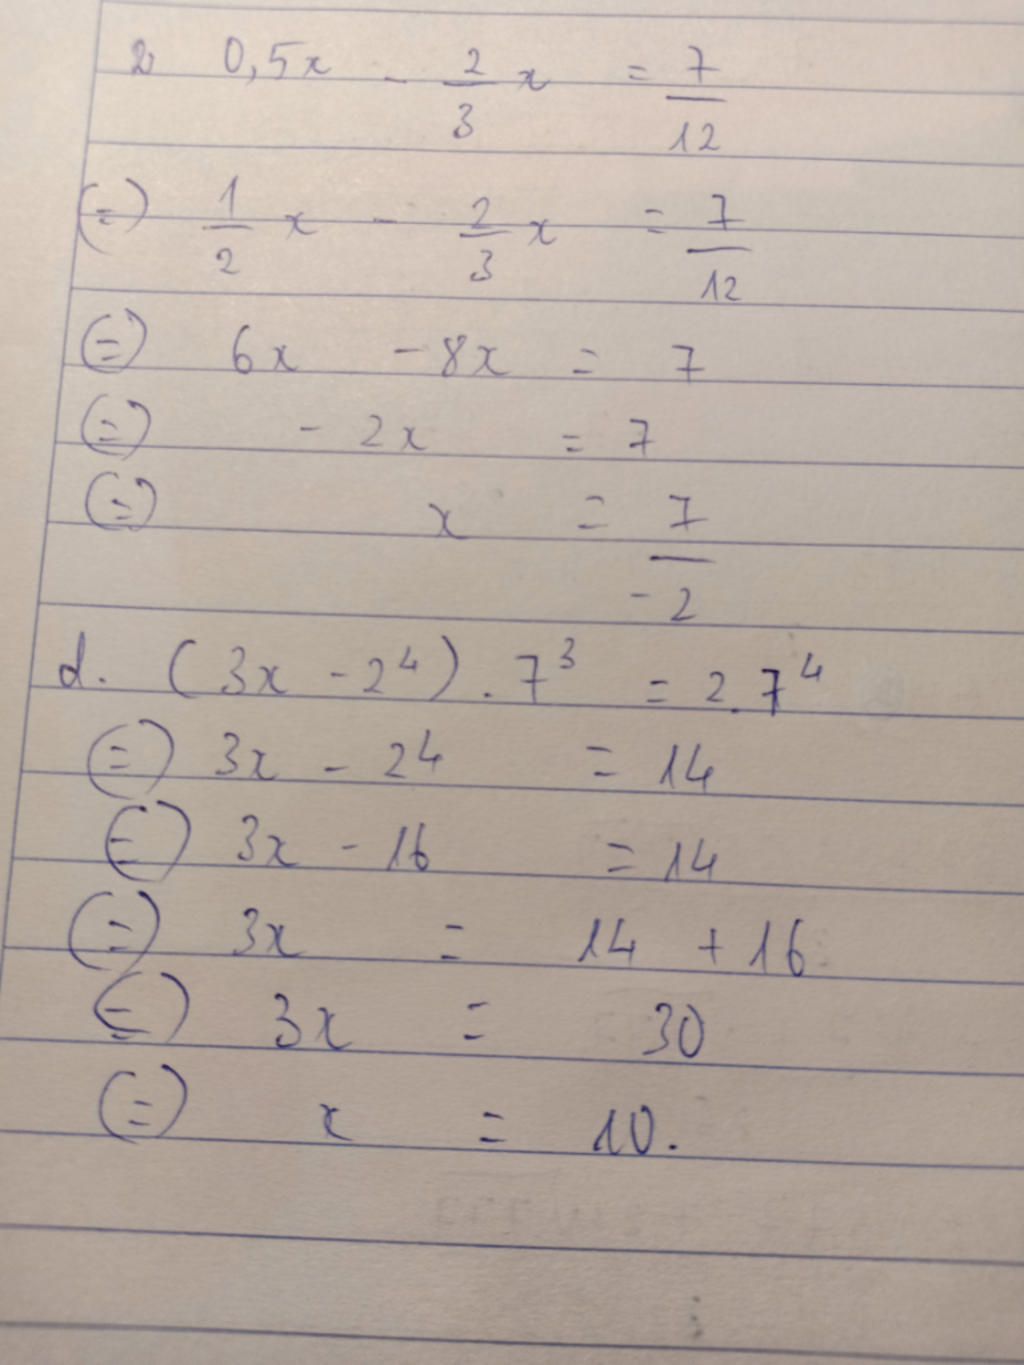 2) 0,5x - 2/3 x = 7/12
(=) 1/2 x - 2/3 x = 7/12
(=) 6x - 8x = 7
(=) - 2x = 7
(=) x = 7/-2
d. (3x - 2⁴) . 7³ = 2.7⁴
(=) 3x - 24 = 14
(=) 3x - 16 = 14
(=) 3x = 14 + 16
(=) 3x = 30
(=) x = 10.